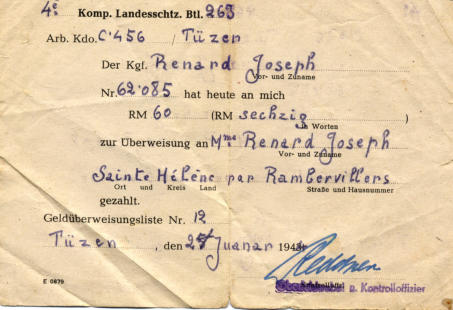 4e Komp. Landesschtz. Btl. 263
Arb. Kdo. C'456 / Tüzen
Der Kgf. Renard Joseph
Vor- und Zuname
Nr. 62'085 hat heute an mich
RM 60 (RM sechzig)
in Worten
zur Überweisung an Mme Renard Joseph
Vor- und Zuname
Sainte Hélène par Rambervillers
Ort und Kreis Land Straße und Hausnummer
gezahlt.
Geldüberweisungsliste Nr. 12
Tüzen, den 25 Juanar 194
u. Kontrolloffizier
E 0879